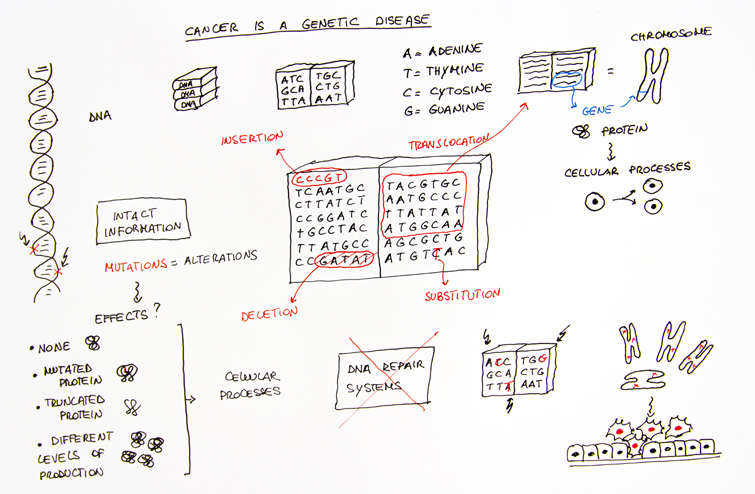 CANCER IS A GENETIC DISEASE
DNA
DNA
DNA
DNA
ATC TGC
GCA CTG
TTA AAT
A = ADENINE
T = THYMINE
C = CYTOSINE
G = GUANINE
=
CHROMOSOME
GENE
PROTEIN
CELLULAR PROCESSES
INSERTION
TRANSLOCATION
CCCGT
TCAATGC
CTTATCT
CCGGATC
TGCCTAC
TTATGCC
CCGATAT
TACGTGC
AATGCCC
TTATTAT
ATGGCAA
AGCGCTG
ATGTCAC
DELETION
SUBSTITUTION
INTACT
INFORMATION
MUTATIONS = ALTERATIONS
EFFECTS?
• NONE
• MUTATED
PROTEIN
• TRUNCATED
PROTEIN
• DIFFERENT
LEVELS OF
PRODUCTION
CELLULAR
PROCESSES
DNA REPAIR
SYSTEMS
ACC TGG
GCA CTG
TTA AAT